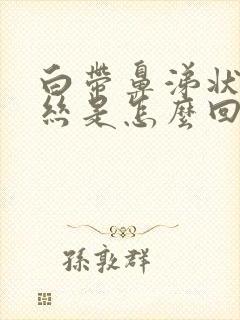 白帶鼻涕狀
絲是怎麼回
孫敦群